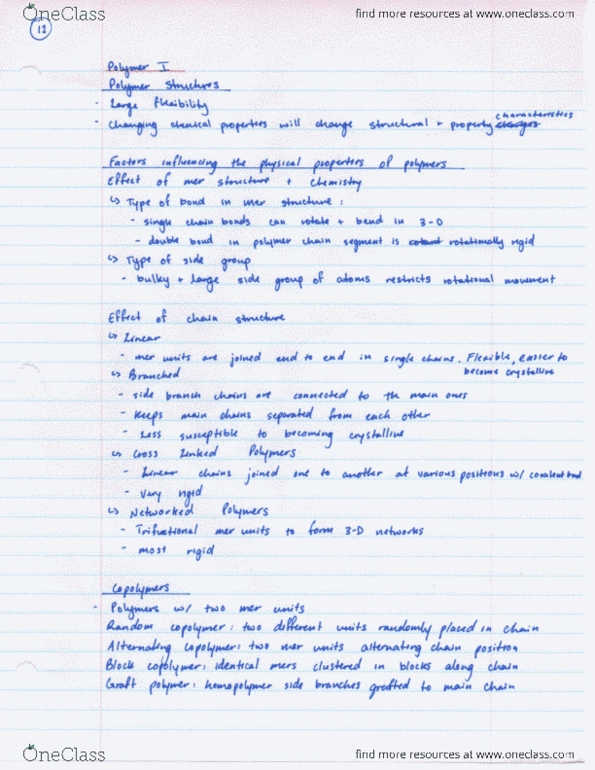 OneClass
find more resources at www.oneclass.com
12
Polymer I
Polymer Structures
- Large flexibility
- Changing chemical properties will change structural + property changes characteristics
Factors influencing the physical properties of polymers
Effect of mer structure + chemistry
↳ Type of bond in mer structure:
- single chain bonds can rotate + bend in 3-D
- double bond in polymer chain segment is rotationally rigid
↳ Type of side group
- bulky + large side group of atoms restricts rotational movement
Effect of chain structure
↳ Linear
- mer units are joined end to end in single chains. Flexible, easier to
become crystalline
↳ Branched
- side branch chains are connected to the main ones
- keeps main chains separated from each other
- Less susceptible to becoming crystalline
↳ Cross Linked Polymers
- Linear chains joined one to another at various positions w/ covalent bond
- very rigid
↳ Networked Polymers
- Trifuctional mer units to form 3-D networks
- most rigid
Copolymers
- Polymers w/ two mer units
Random copolymer: two different units randomly placed in chain
Alternating copolymer: two mer units alternating chain position
Block copolymer: identical mers clustered in blocks along chain
Graft polymer: homopolymer side branches grafted to main chain
OneClass
find more resources at www.oneclass.com